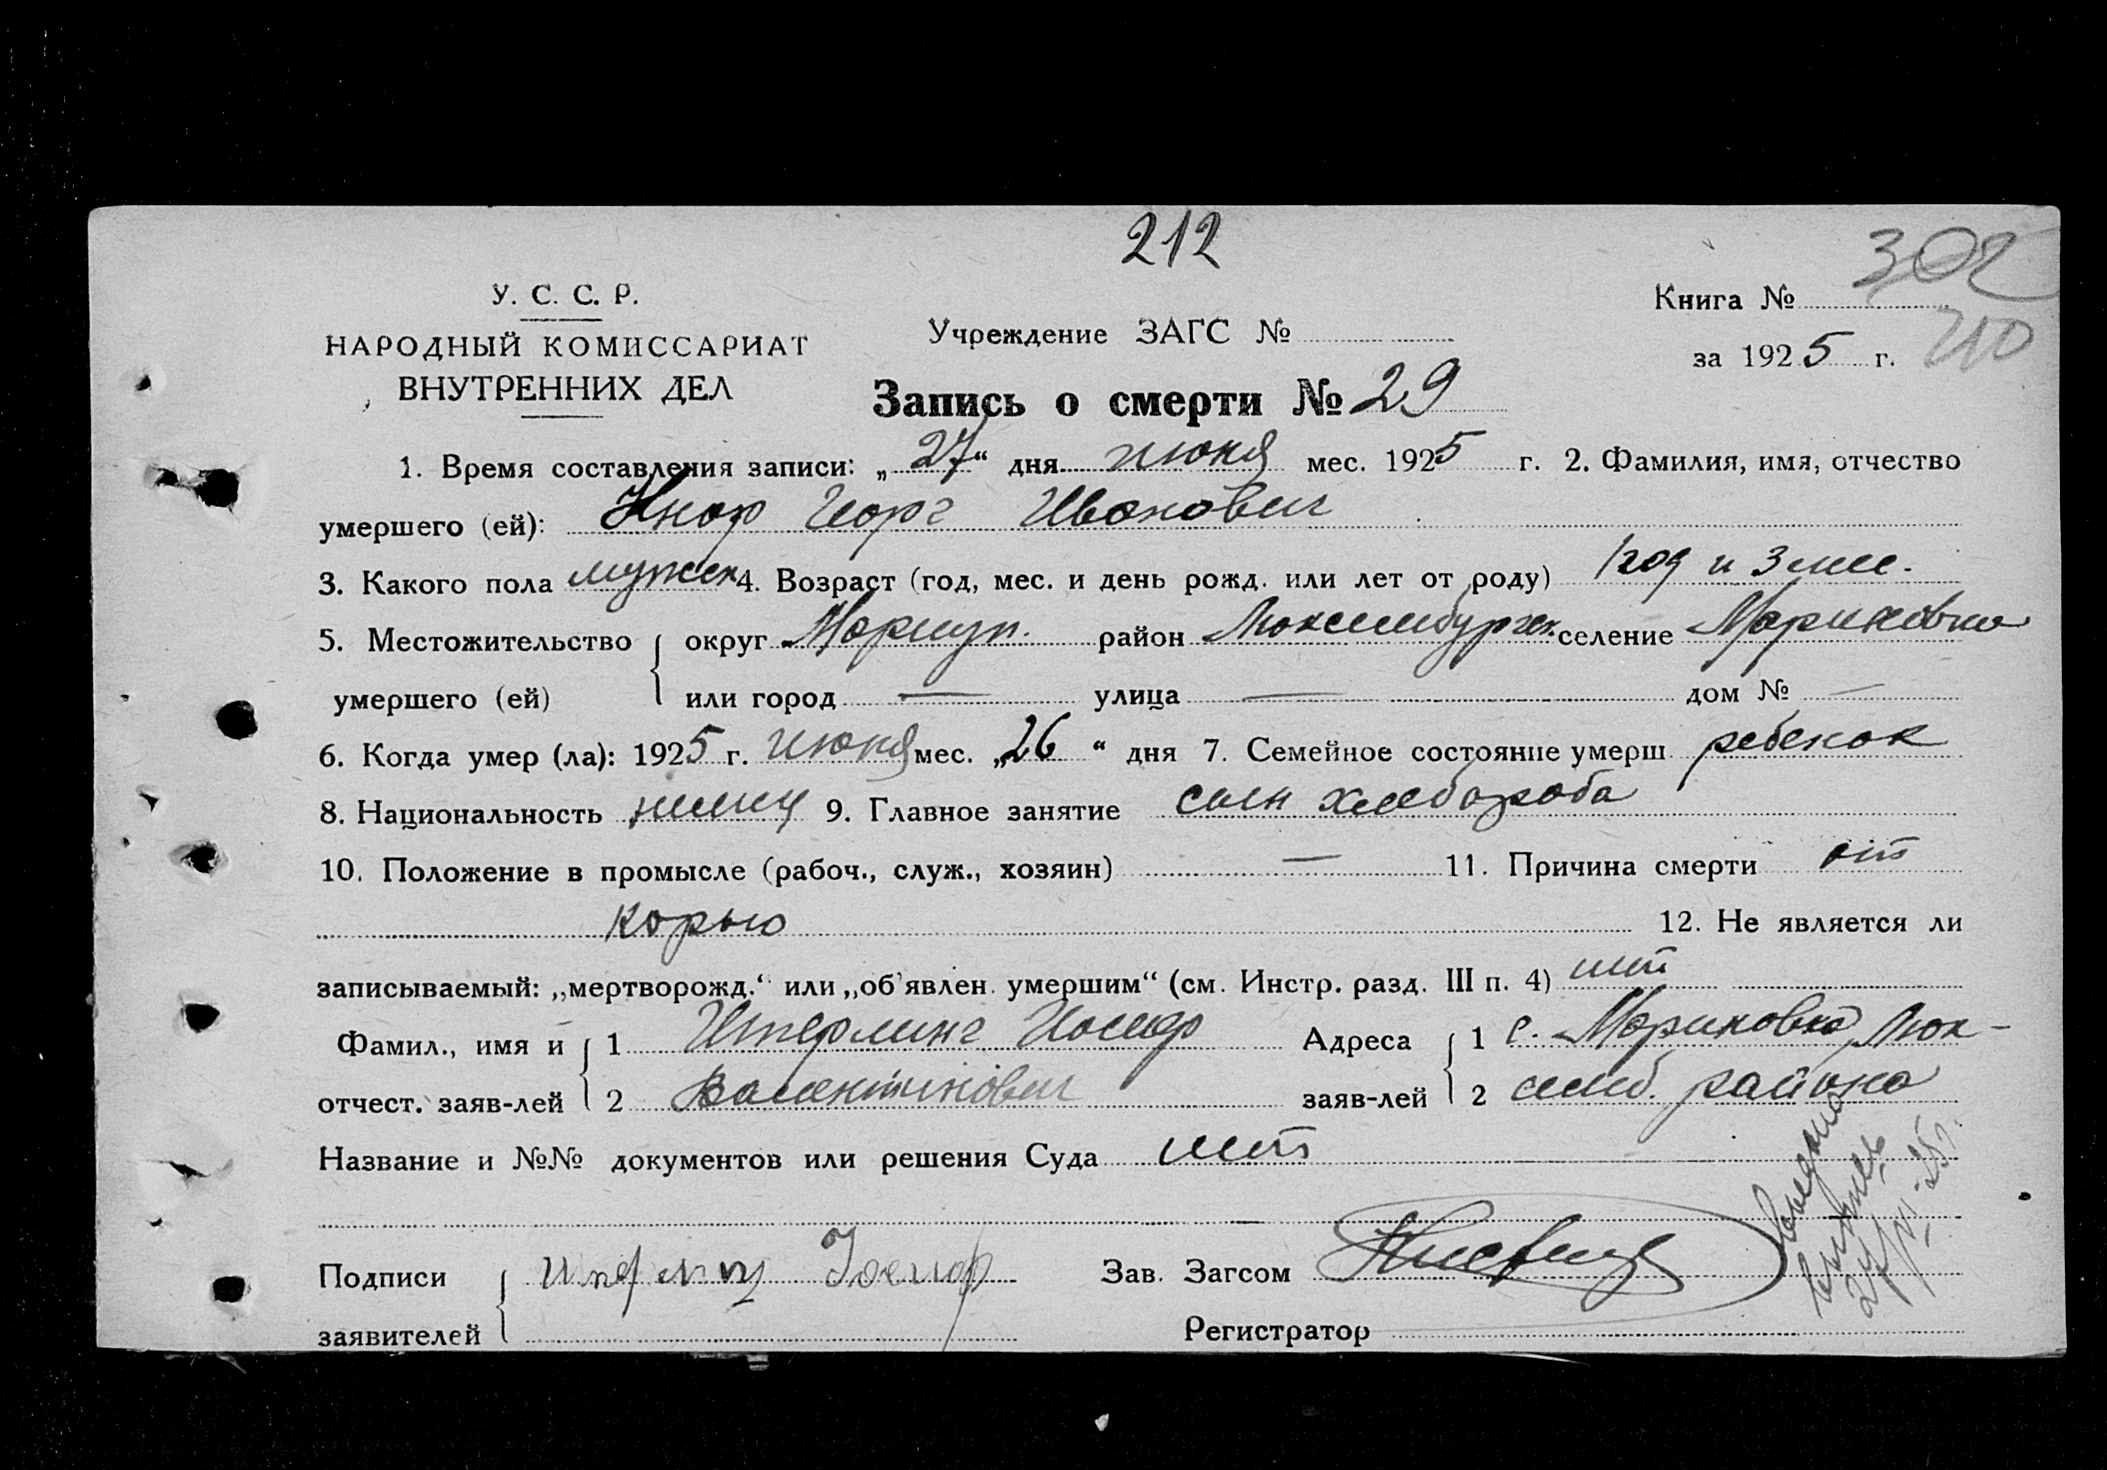 212
302
У. С. С. Р.
Книга №
НАРОДНЫЙ КОМИССАРИАТ
Учреждение ЗАГС №
210
за 1925 г.
ВНУТРЕННИХ ДЕЛ
Запись о смерти № 29
1. Время составления записи: „27“ дня июня мес. 1925 г. 2. Фамилия, имя, отчество
умершего (ей): Кнор Георг Иванович
3. Какого пола мужск 4. Возраст (год, мес. и день рожд. или лет от роду) 1 год и 3 мес.
5. Местожительство округ Мариуп. район Люксембургск. селение Мариновка
умершего (ей) или город — улица — дом № —
6. Когда умер (ла): 1925 г. июня мес. „26“ дня 7. Семейное состояние умерш ребенок
8. Национальность немец 9. Главное занятие сын хлебороба
10. Положение в промысле (рабоч., служ., хозяин) — 11. Причина смерти от
корью 12. Не является ли
записываемый: „мертворожд.“ или „об'явлен. умершим“ (см. Инстр. разд. III п. 4) нет
Фамил., имя и 1 Штерлинг Иосиф Адреса 1 с. Мариновка, Люк-
отчест. заяв-лей 2 Валентинович заяв-лей 2 семб. района
Название и №№ документов или решения Суда нет
Подписи Иосиф Зав. Загсом
заявителей Регистратор